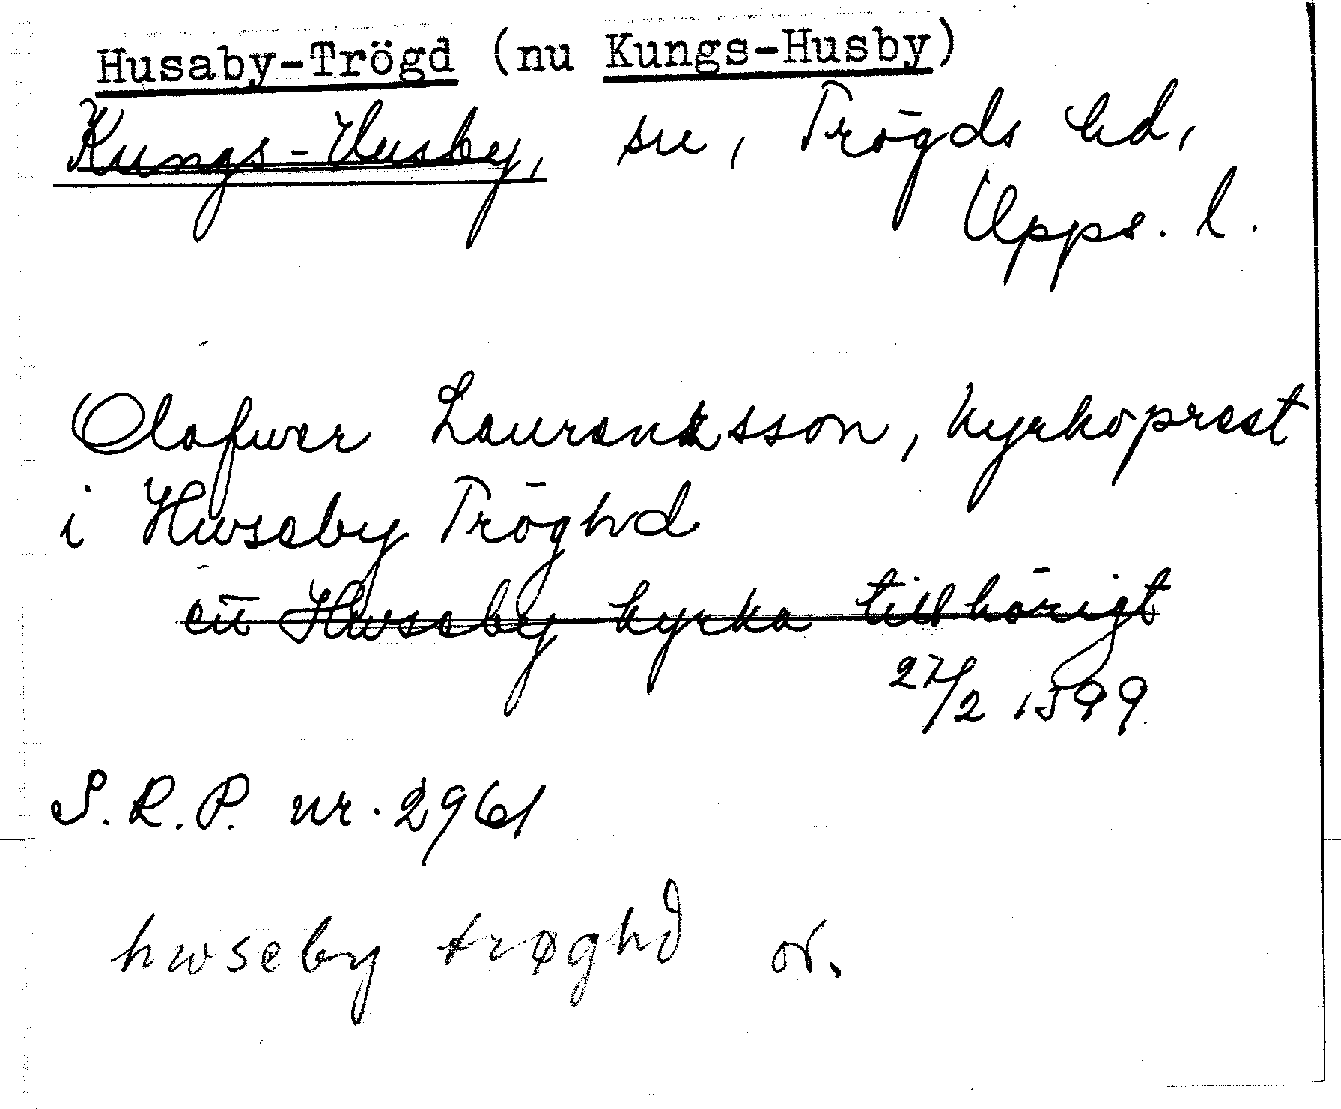 Husaby-Trögd (nu Kungs-Husby)
Kungs-Husby, sn, Trögds hd,
Upps. l.
Olafwer Laurensson, kyrkoprest
i Hwseby Tröghd
en Hwseby kyrka tillhörigt
27/2 1399
S.R.P. nr. 2961
hwseby trøghd or.